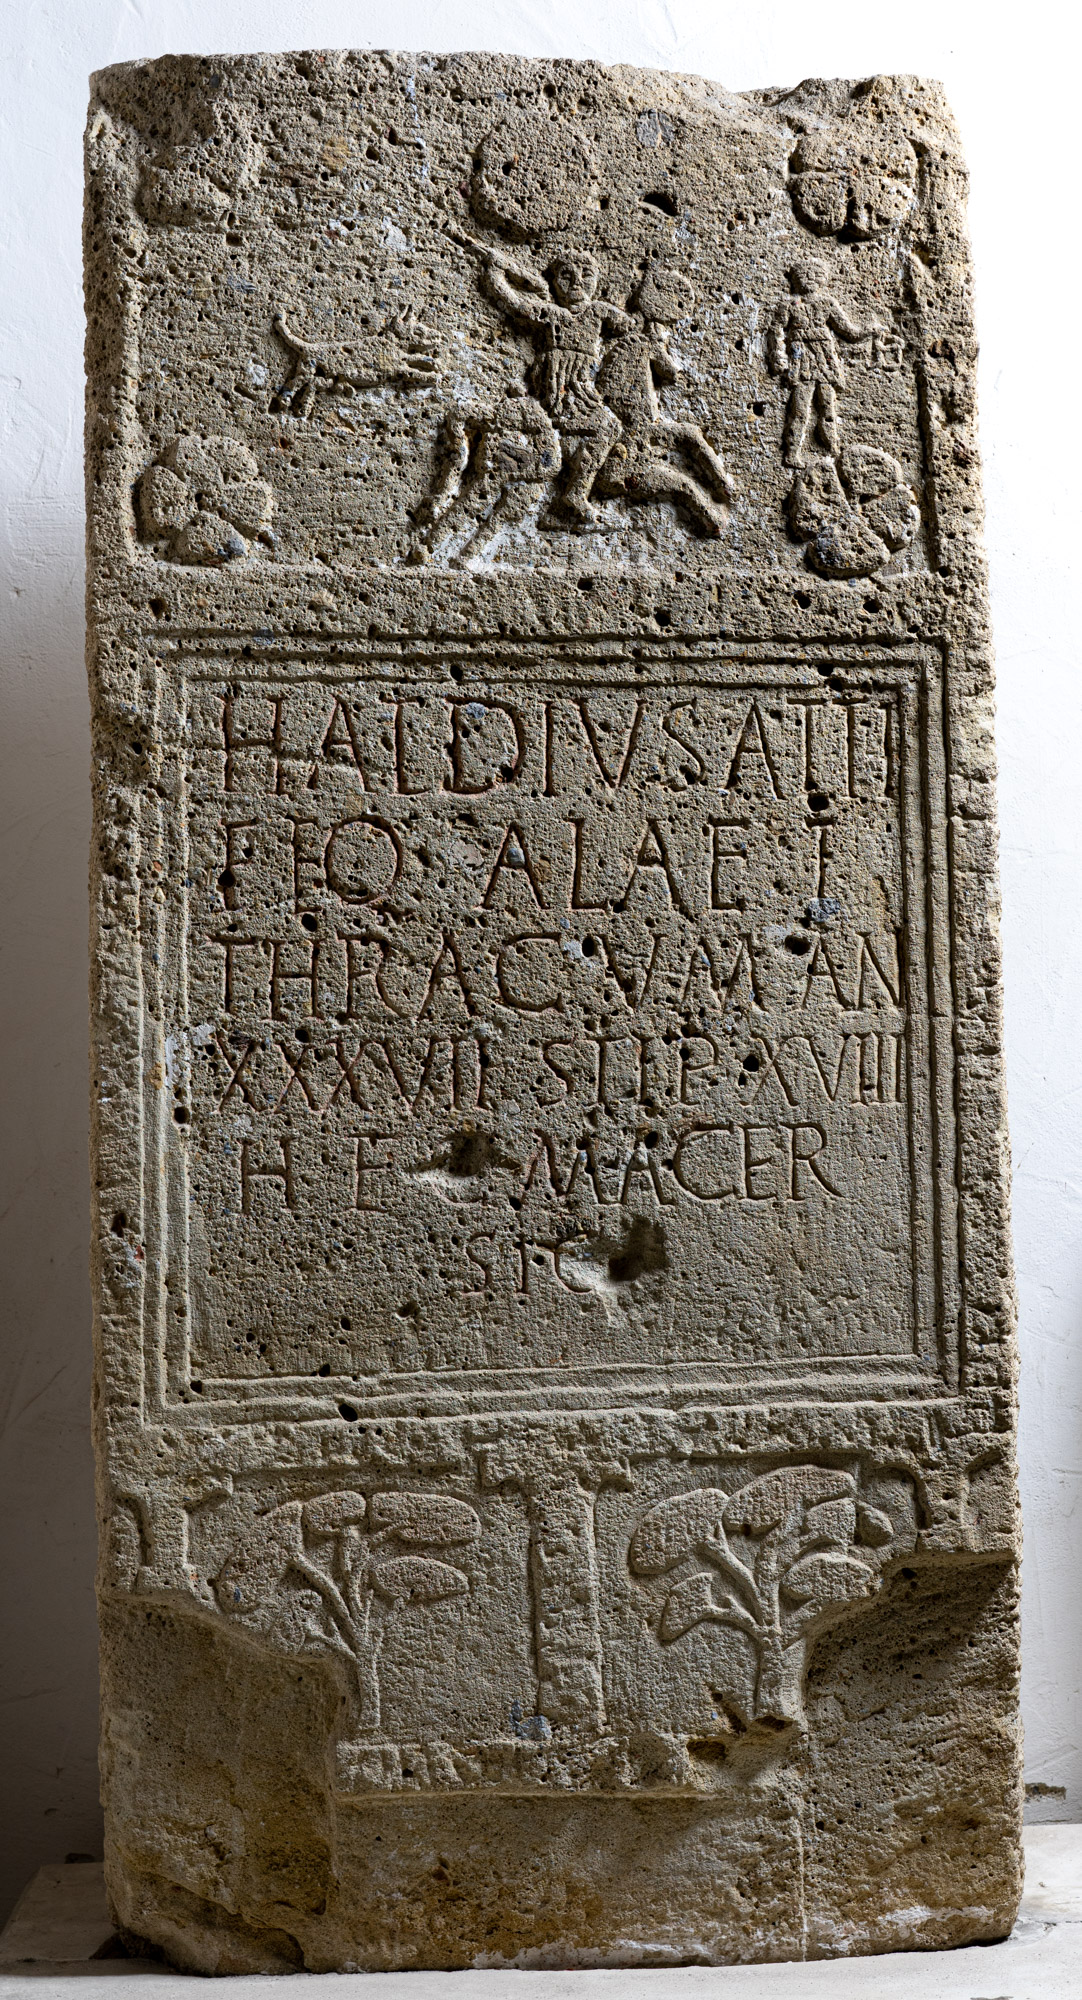 HALDIVSATTI
FEQ ALAE I
THRACVM AN
XXXVII STIP XVIII
H E C MACER
SIC